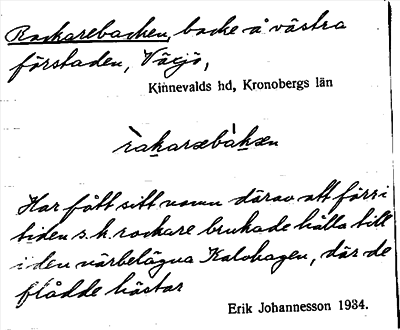 Rackarebacken, backe å västra
förstaden, Växjö,
Kinnevalds hd, Kronobergs län
ràkaræbàkæn
Har fått sitt namn därav att förr i
tiden s.k. rackare brukade hålla till
i den närbelägna Kalvhagen, där de
flådde hästar
Erik Johannesson 1934.